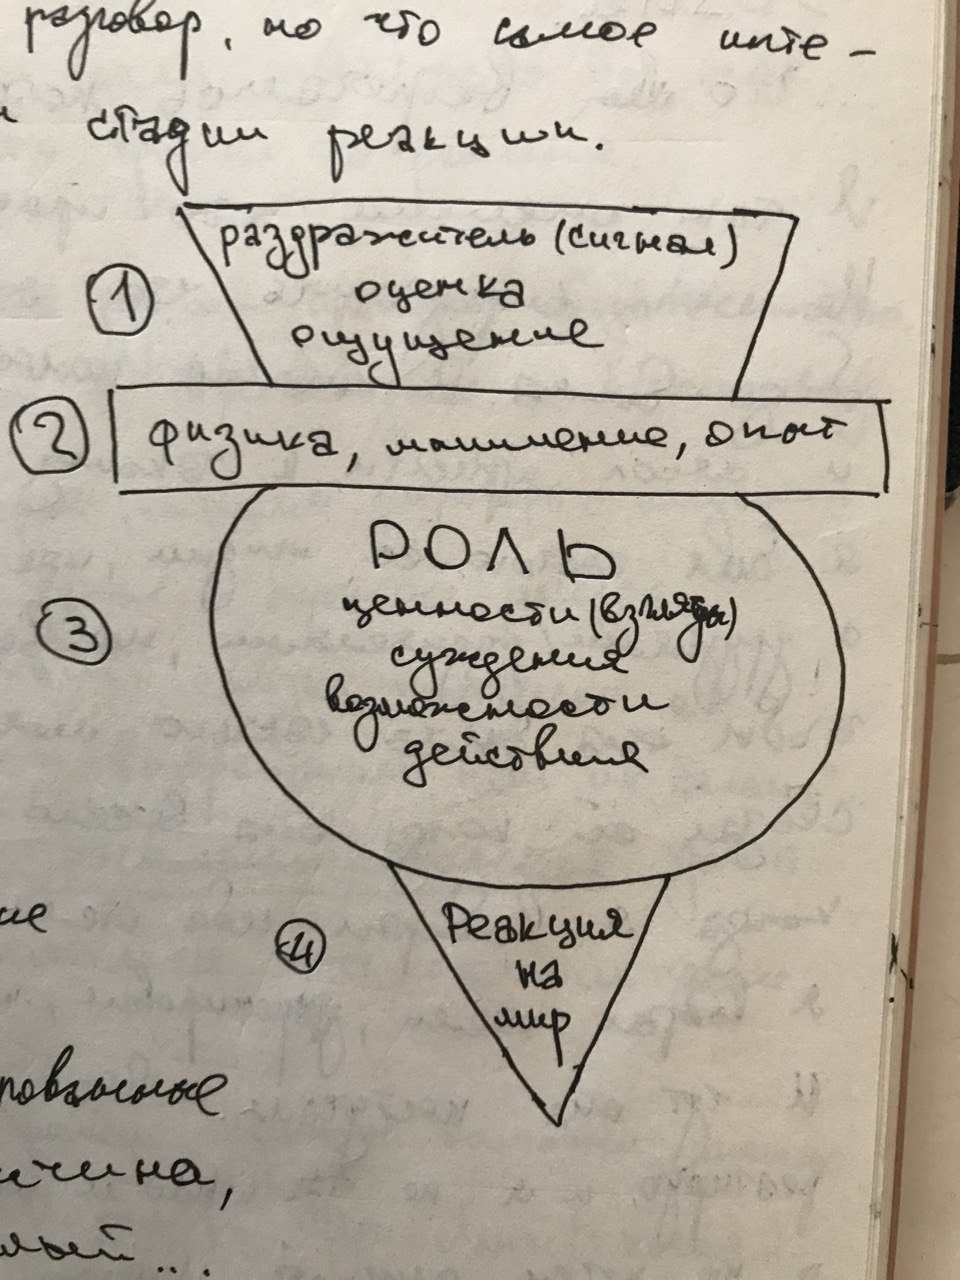 разговор, но что самое инте-
стадии реакции.
раздражитель (сигнал)
1 оценка
ощущение
2 физика, мышление, опыт
РОЛЬ
ценности (взгляды)
3 суждения
возможности
действия
4 Реакция
на
мир